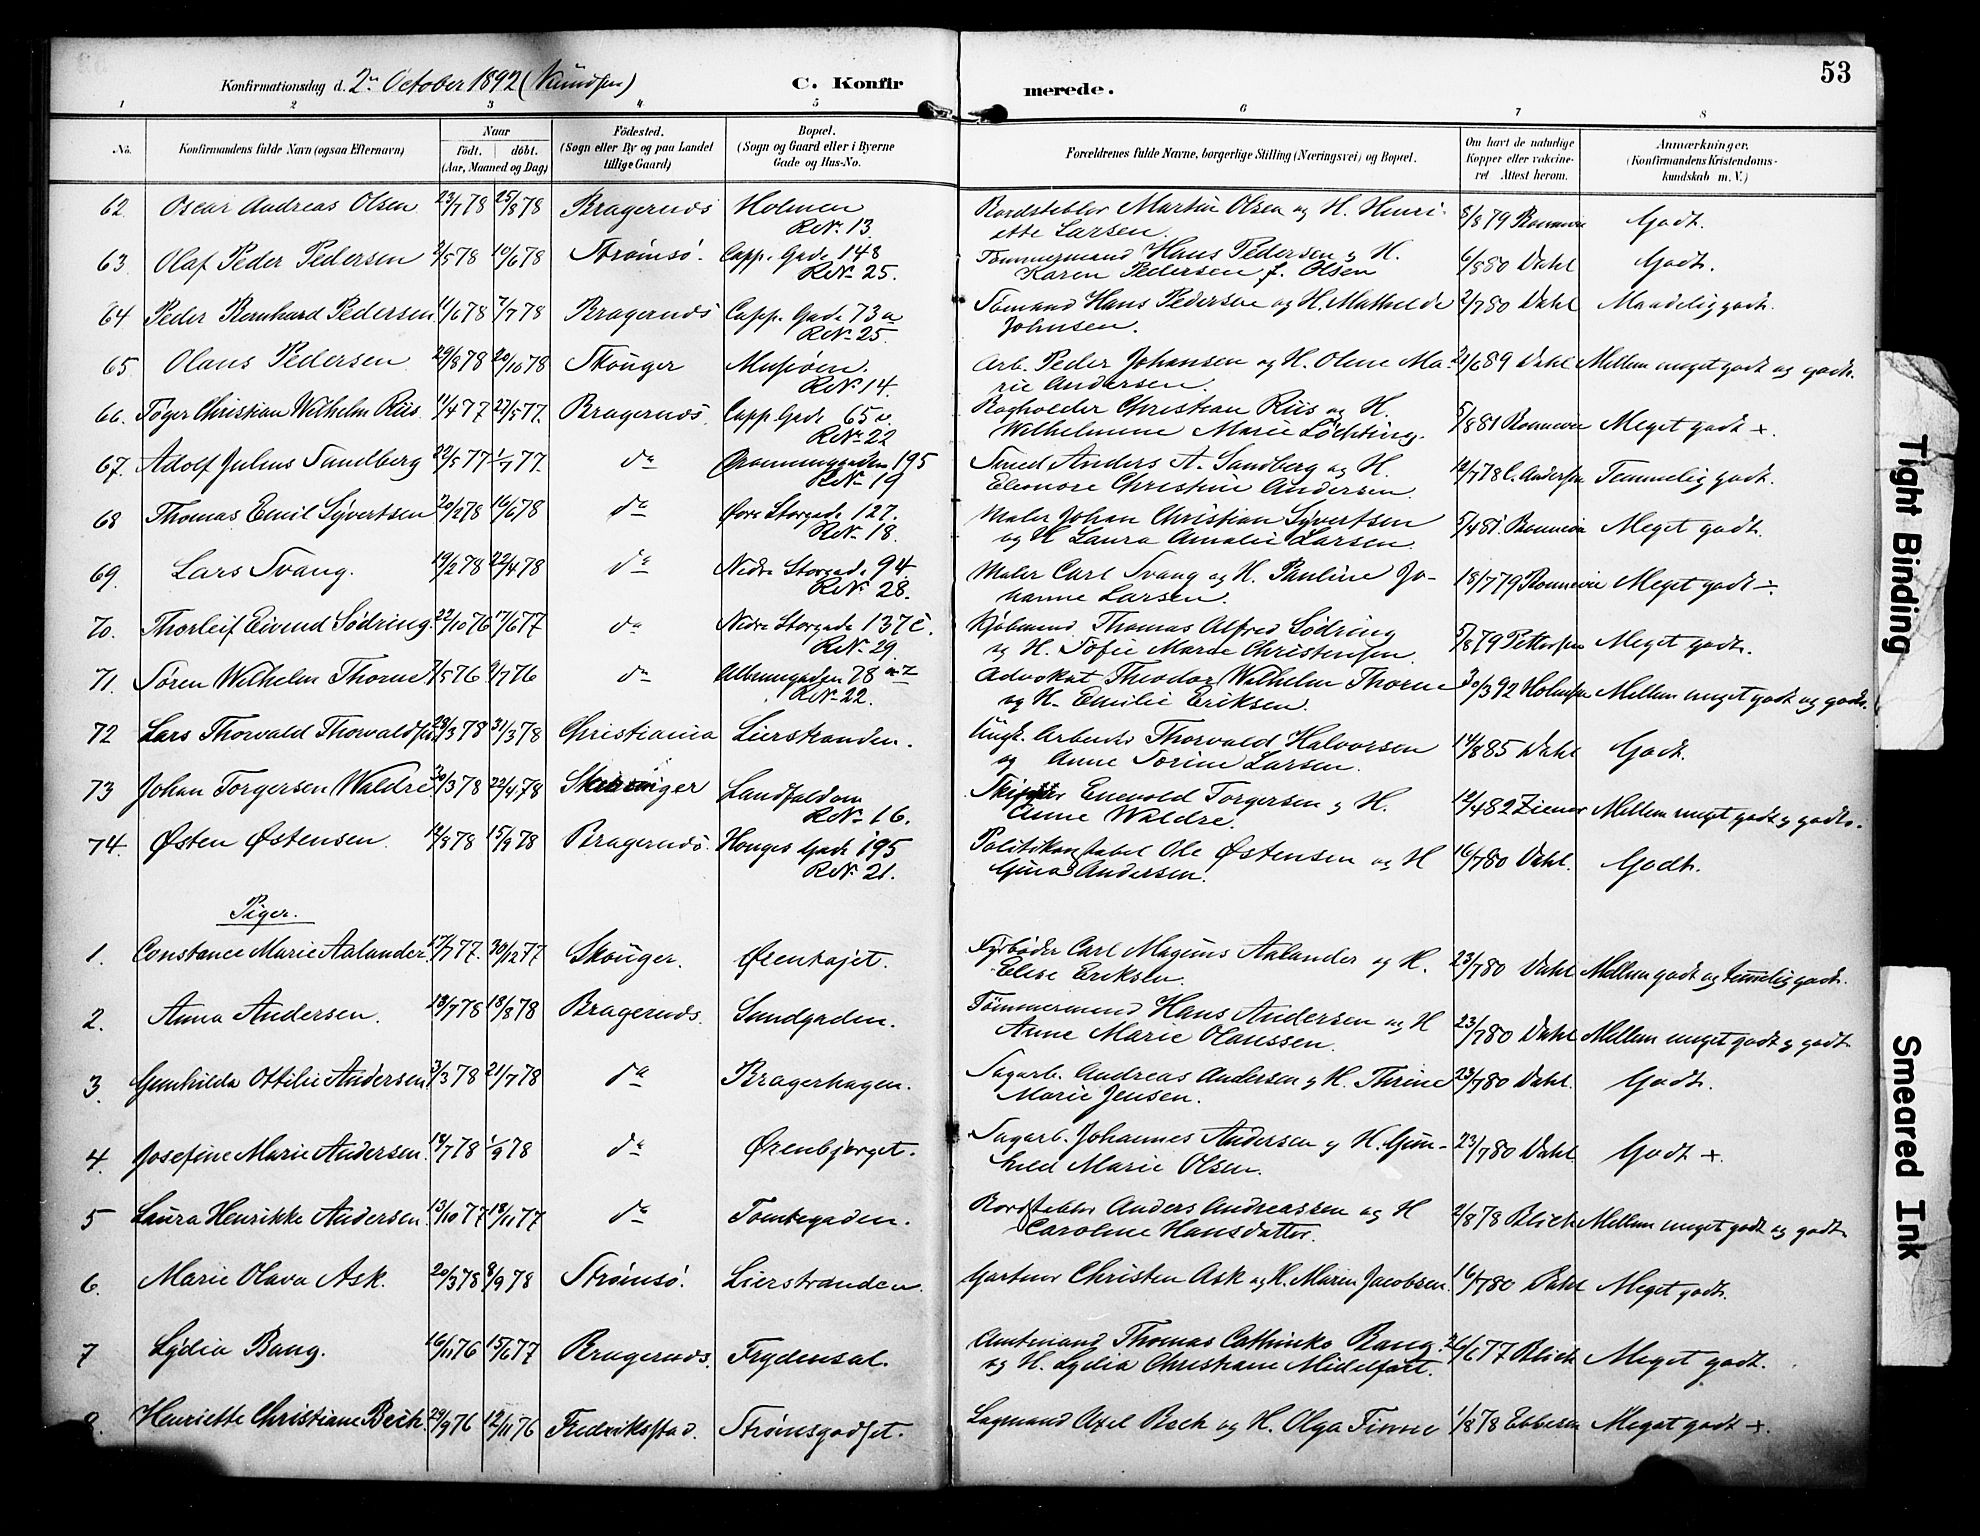 53
Konfirmationsdag d. 2n October 1892 (Knudsen) C. Konfir merede.
1 2 3 4 5 6 7 8
No. Konfirmandens fulde Navn (ogsaa Efternavn) Naar født. døbt. (Aar, Maaned og Dag) Fødested. (Sogn eller By og paa Landet tillige Gaard) Bopæl. (Sogn og Gaard eller i Byerne Gade og Hus-No. Forældrenes fulde Navne, borgerlige Stilling (Næringsvei) og Bopæl. Om havt de naturlige Kopper eller vakcineret Attest herom. Anmærkninger. (Konfirmandens Kristendomskundskab m. V.)
62 Oscar Andreas Olsen 23/7 78 25/8 78 Bragernæs Holmen Bordstabler Martin Olsen og H. Henri- 8/8 79 Godt.
R.No. 13 ette Larsen.
63 Olaf Peder Pedersen 2/5 78 10/6 78 Strømsö. Capp. Gade 148 Tømmermand Hans Pedersen og H. 6/8 80 Dahl Godt.
R.No. 25. Karen Pedersen f. Olsen
64 Peder Bernhard Pedersen 11/6 78 7/7 78 Bragernæs Capp. Gade 73a Sømand Hans Pedersen og H. Mathilde 2/7 80 Dahl Maadelig godt.
R.No. 25. Johnsen.
65 Olaus Pedersen 29/8 78 20/10 78 Skouger R.No. 14. Arb. Peder Johansen og H. Oline Ma- 21/6 89 Dahl Mellem meget godt og godt.
rie Andersen.
66. Tøger Christian Wilhelm Riis 11/4 77 27/5 77. Bragernæs Capp. Gade 65a. Bogholder Christian Riis og H. 5/8 81 Meget godt +.
R.No. 22 Wilhelmine Marie Löchting.
67. Adolf Julius Sandberg 22/5 77 1/7 77. do 195 Smed Anders A. Sandberg og H. 12/7 78 C. Andersen Temmelig godt.
R.No. 19 Eleonore Christine Andersen.
68 Thomas Emil Syvertsen 20/2 78 16/6 78 do Øvre Storgade 127. Maler Johan Christian Syvertsen 5/4 81 Meget godt.
R.No. 18. og H. Laura Amalie Larsen.
69. Lars Svang. 19/2 78 22/4 78 do Nedre Storgade 94 Maler Carl Svang og H. Pauline Jo- 18/7 79 Meget godt ÷.
R.No. 28. hanne Larsen.
70. Thorleif Eivind Södring. 22/10 76 17/6 77 do Nedre Storgade 137c. Kjøbmand Thomas Alfred Södring 5/8 79 Pettersen Meget godt.
R.No. 29. og H. Sofie Marie Christensen.
71. Søren Wilhelm Thorne 7/5 76 9/7 76 do Albumgaden 78 Advokat Theodor Wilhelm Thorne 30/3 92 Mellem meget godt og godt.
R.No. 22. og H. Emilie Eriksen.
72 Lars Thorvald Thorvaldsen 28/3 78 31/3 78 Christiania Lierstranden. Ungk. Arbeider Thorvald Halvorsen 14/8 85 Dahl Godt.
og Anne Sorine Larsen.
73 Johan Torgersen Waldre. 30/3 78 22/4 78 Skouger Landfaldøen Skipper Enevold Torgersen og H. 12/4 82 Ziener Mellem meget godt og godt.
R.No. 16. Anne Waldre.
74. Østen Østensen 14/8 78 15/9 78 Bragernæs. Hauges Gade 195 Politikonstabel Ole Østensen og H 16/7 80 Dahl. Godt.
R.No. 21. Gina Andersen.
Piger.
1. Constance Marie Aalander. 17/7 77. 30/12 77 Skouger. Ørenhajet. Fyrbøder Carl Magnus Aalander og H. 23/7 80 Dahl Mellem godt og temmelig godt.
Elise Eriksen.
2. Anna Andersen. 18/7 78 18/8 78 Bragernæs. Sundgaden. Tømmermand Hans Andersen og H 23/7 80 Dahl Mellem meget godt og godt.
Anne Marie Olaussen.
3. Gunhilda Ottilie Andersen 3/3 78 21/7 78 do Bragerhagen. Sagarb. Andreas Andersen og H. Thrine 23/7 80 Dahl. Godt.
Marie Jensen.
4. Josefine Marie Andersen. 14/7 78 1/9 78 do Ørenbjerget. Sagarb. Johannes Andersen og H. Gun- 23/7 80 Dahl. Godt +.
hild Marie Olsen.
5 Laura Henrikke Andersen 13/10 77 18/11 77 do Tomtegaden. Bordstabler Anders Andreassen og H 2/8 78 Blich Mellem meget godt og godt.
Caroline Hansdatter.
6. Marie Olava Ask. 20/3 78 8/9 78 Strømsö. Lierstranden. Gartner Christen Ask og H. Maren Jacobsen. 16/7 80 Dahl Meget godt.
7 Lydia Bang. 16/11 76 15/6 77 Bragernæs. Frydensal. Amtmand Thomas Cathinko Bang 26/6 77 Blich Meget godt.
og H. Lydia Christiane Midelfart.
8. Henriette Christiane Bech. 29/9 76 12/11 76 Fredriksstad. Strømsgodset. Lagmand Axel Bech og H. Olga Finne 1/8 78 Ebbesen Meget godt +.
Tight Binding
Smeared Ink